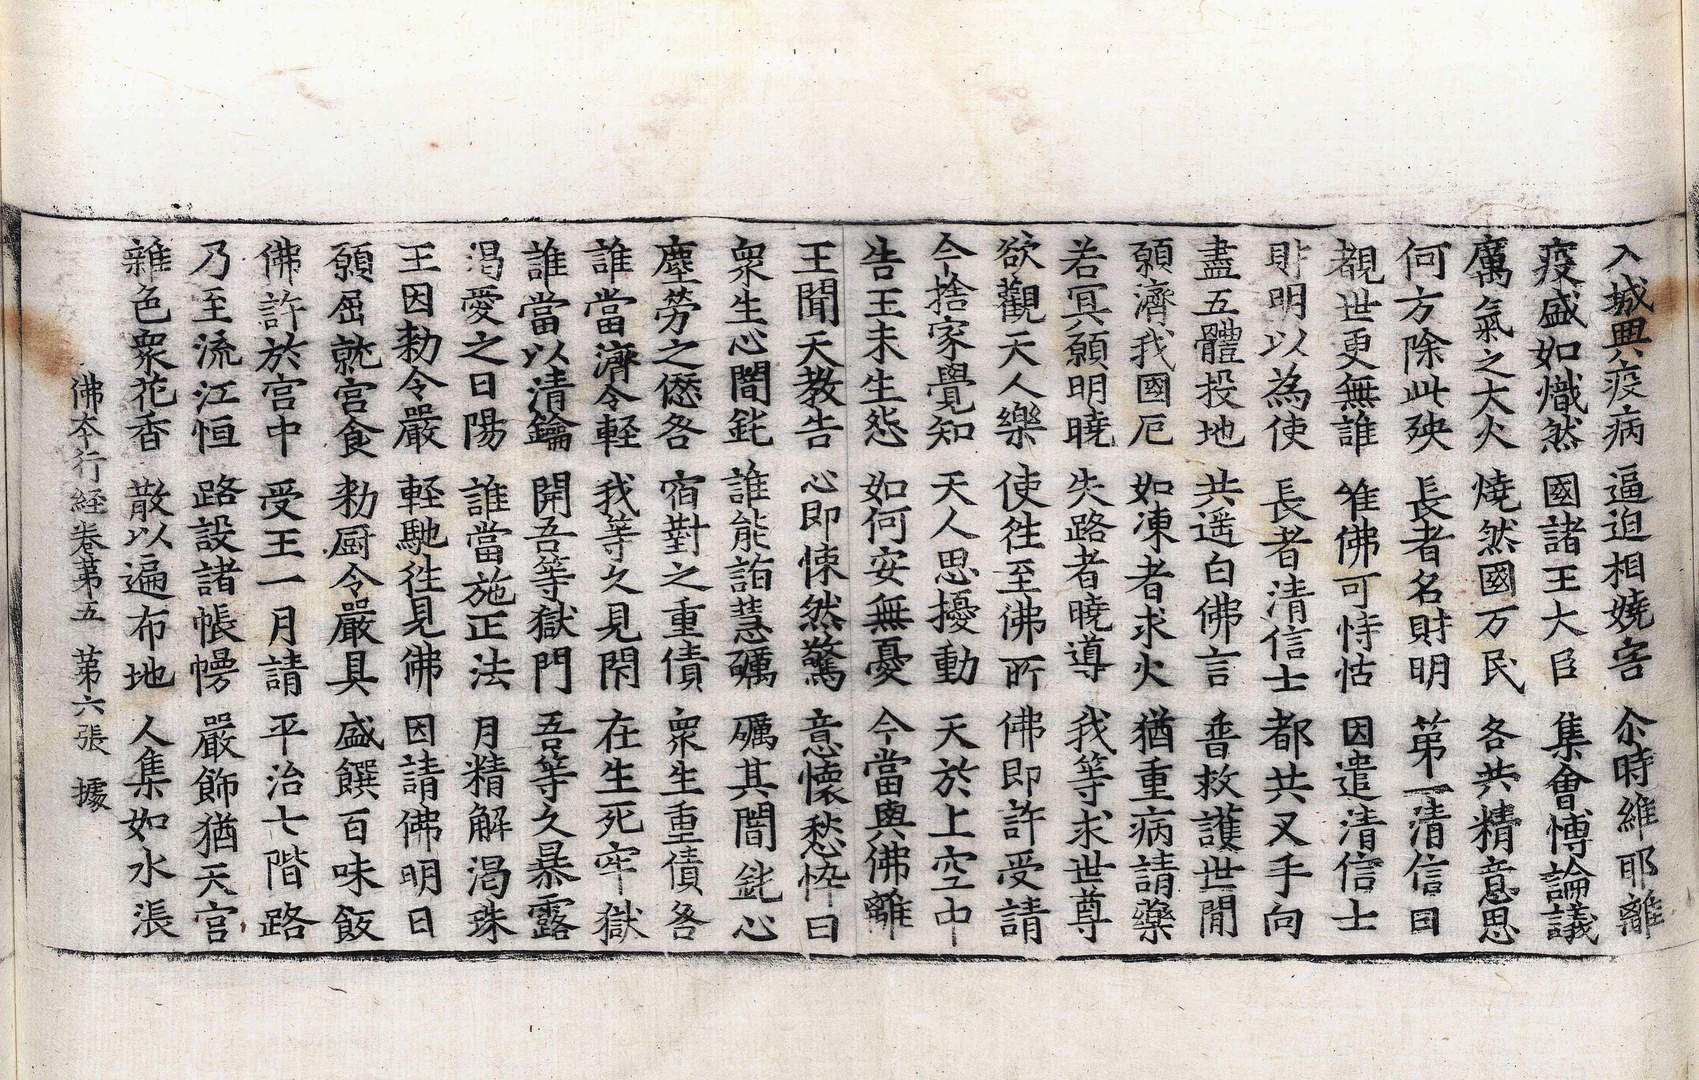 入城興疫病 逼迫相嬈害 尒時維耶離
疫盛如熾然 國諸王大臣 集會博論議
厲氣之大火 燒然國万民 各共精意思
何方除此殃 長者名財明 第一清信曰
覩世更無誰 唯佛可恃怙 因遣清信士
財明以為使 長者清信士 都共叉手向
盡五體投地 共遥白佛言 普救護世間
願濟我國厄 如凍者求火 猶重病請藥
若冥願明曉 失路者曉導 我等求世尊
欲觀天人樂 使徃至佛所 佛即許受請
今捨家覺知 天人思擾動 天於上空中
告王未生怨 如何安無憂 今當與佛離
王聞天教告 心即悚然驚 意懷愁忰曰
衆生心闇鈍 誰能詣慧礪 礪其闇鈍心
塵勞之㦣各 宿對之重債 衆生重債各
誰當濟令軽 我等久見閇 在生死牢獄
誰當以清鑰 開吾等獄門 吾等久暴露
渴愛之日陽 誰當施正法 月精解渴珠
王因勑令嚴 軽馳徃見佛 因請佛明日
願屈就宮食 勑厨令嚴具 盛饌百味飯
佛許於宮中 受王一月請 平治七階路
乃至流江恒 路設諸帳幔 嚴飾猶天宮
雜色衆花香 散以遍布地 人集如水漲
佛夲行経卷第五 第六張 據